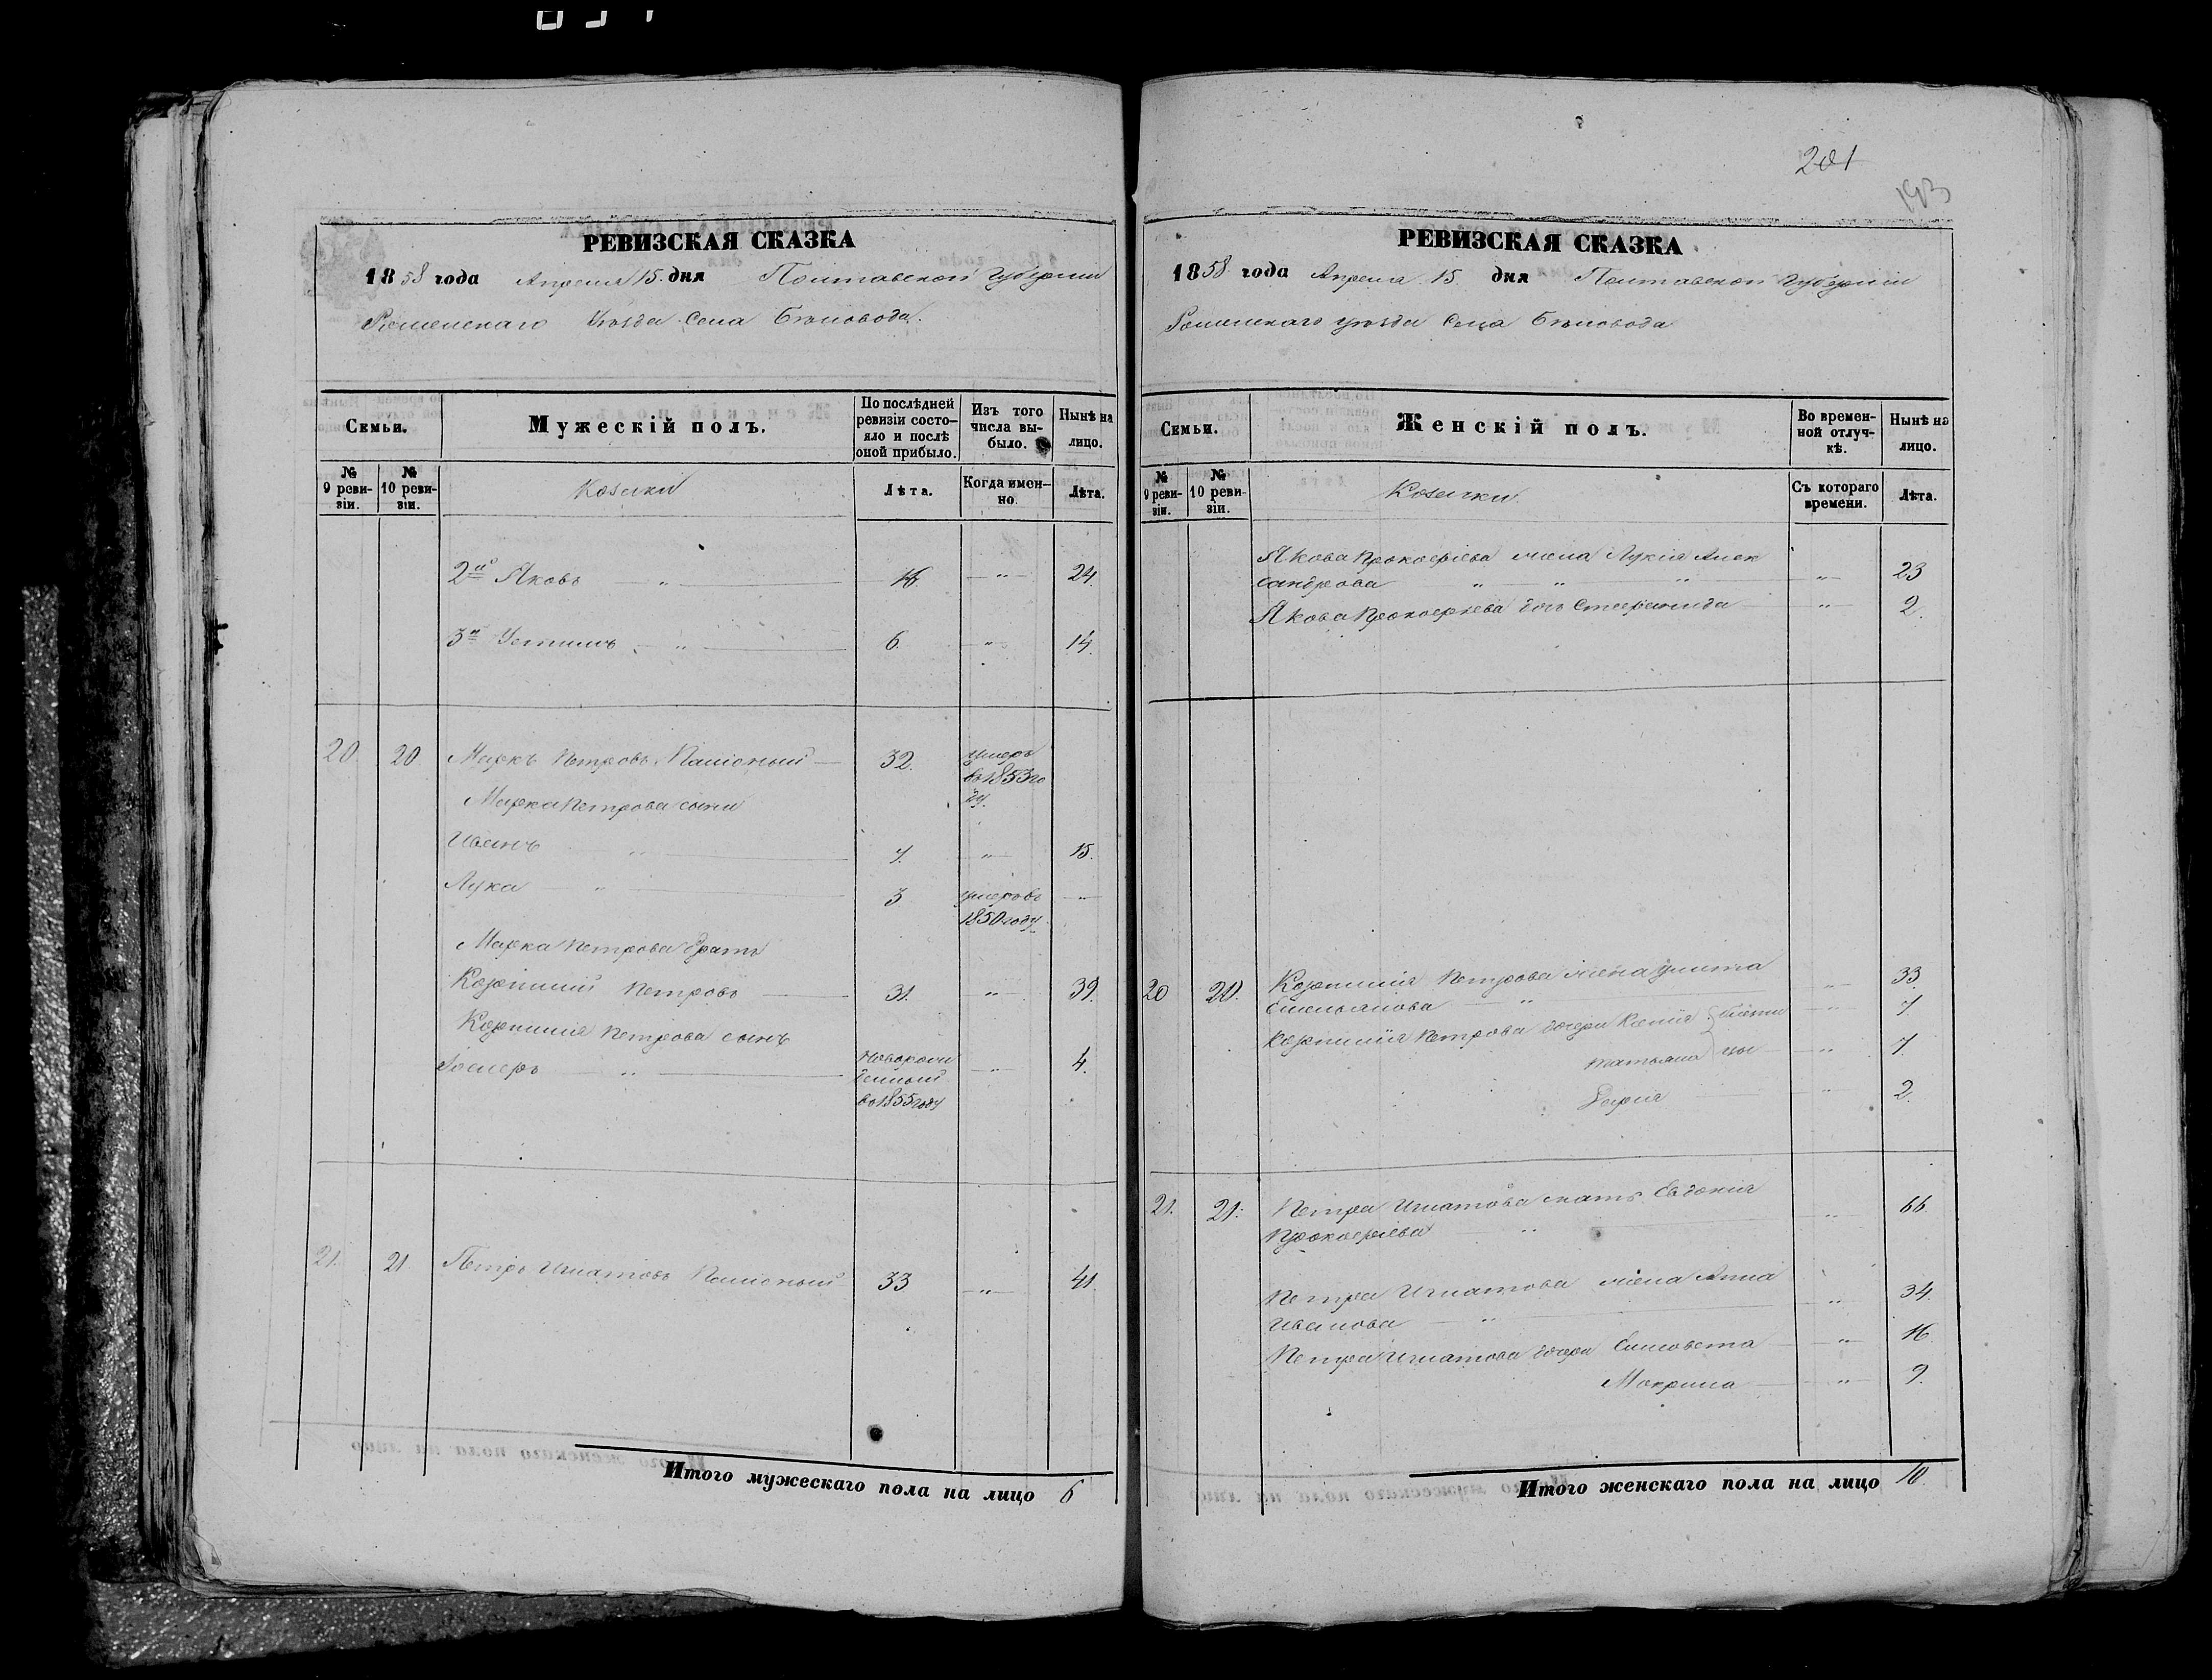 201
193
РЕВИЗСКАЯ СКАЗКА
1858 года Апреля 15. дня Полтавской Губернии
Роменскаго Уѣзда Села Бѣловода.
Семьи.
Мужескій полъ.
По послѣдней ревизіи состо-
яло и послѣ
оной прибыло.
Изъ того
числа вы-
было.
Нынѣ на
лицо.
№
9 реви-
зіи.
№
10 реви-
зіи.
Козаки
Лѣта.
Когда имен-
но.
Лѣта.
2й Яковъ — " — 16. — " — 24.
3й Устимъ — " — 6. — " — 14.
20 20 Маркъ Петровъ — 32. умеръ
во 1853 го
ду.
Марка Петрова сыни
Иванъ " — 7. — " — 15.
Лука — " — 3 умеръ въ — " —
1850 году.
Марка Петрова братъ
Петровъ — 31. — " — 39.
Петрова сынъ
— " — новорож
денный — " — 4.
во 1855 году
21. 21 Петръ Игнатовъ 33 — " — 41.
Итого мужескаго пола на лицо 6
РЕВИЗСКАЯ СКАЗКА
1858 года Апреля 15. дня Полтавской Губерніи
Роменскаго уѣзда Села Бѣловода
Семьи.
Женскій полъ.
Во времен-
ной отлуч-
кѣ.
Нынѣ на
лицо.
№
9 реви-
зіи.
№
10 реви-
зіи.
Козачки.
Съ котораго
времени.
Лѣта.
Якова Прокофіева жена Лукія Алек
сандрова " " " — " — 23
Якова Прокофіева дочь Степанида — " — 2.
20 20. Петрова жена Улита
Емельянова — " " 33.
Петрова дочери Ксенія } близни — " — 7
Татьяна } цы — " — 7.
Дарія — " — 2.
21. 21. Петра Игнатова мать Евдокія
Прокофіева — " " 66
Петра Игнатова жена Анна
Иванова — " " 34.
Петра Игнатова дочери Елисовета — " — 16.
Макрина — " — 9.
Итого женскаго пола на лицо 10.